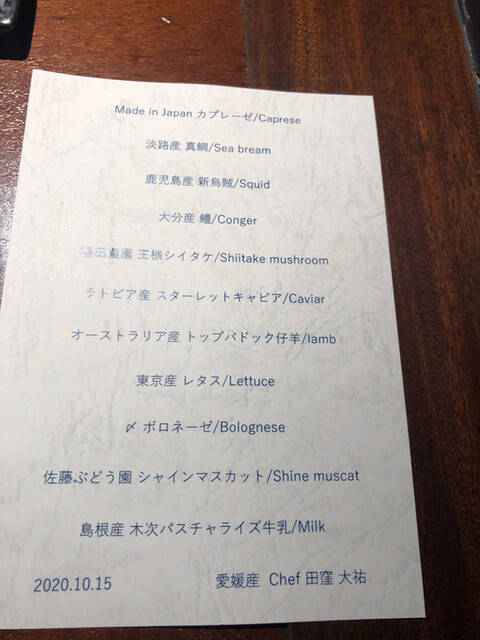 Made in Japan カプレーゼ/Caprese
淡路産 真鯛/Sea bream
鹿児島産 新烏賊/Squid
大分産 鱧/Conger
農園 王様シイタケ/Shiitake mushroom
ラトビア産 スターレットキャビア/Caviar
オーストラリア産 トップパドック仔羊/lamb
東京産 レタス/Lettuce
〆 ボロネーゼ/Bolognese
佐藤ぶどう園 シャインマスカット/Shine muscat
島根産 木次パスチャライズ牛乳/Milk
2020.10.15 愛媛産 Chef 田窪 大祐